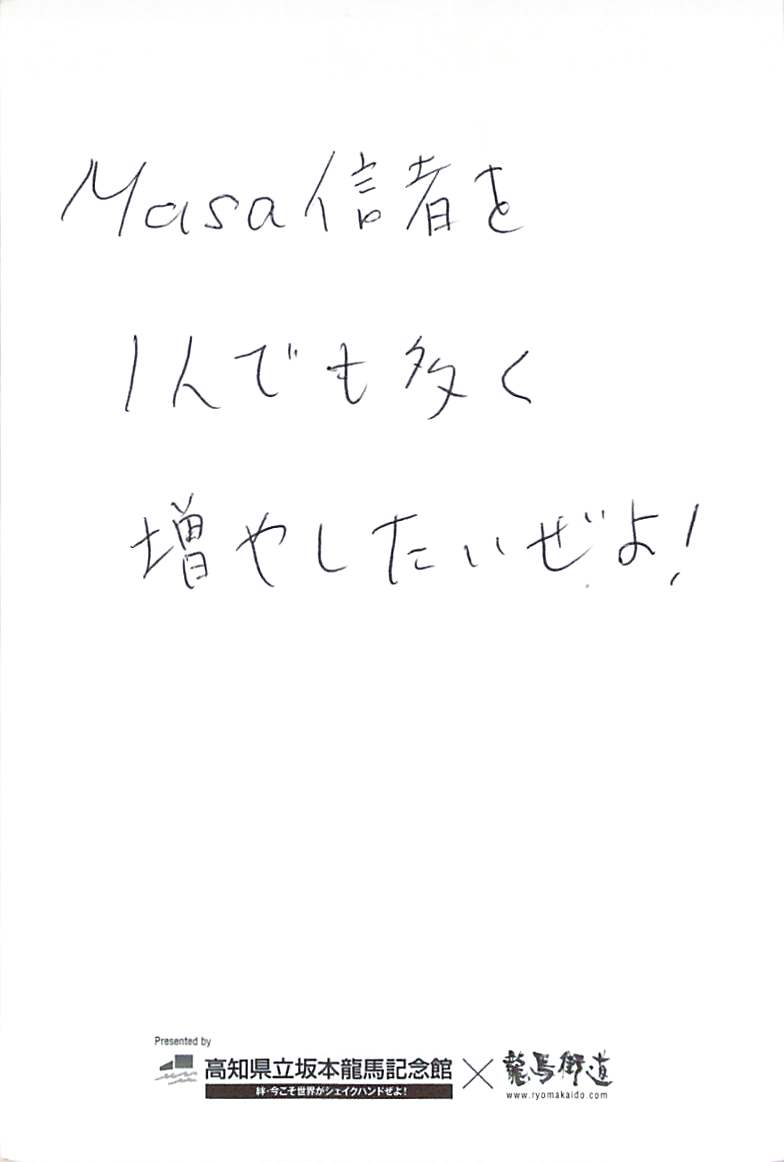 Masa信者を
1人でも多く
増やしたいぜよ!
Presented by
高知県立坂本龍馬記念館×龍馬街道
絆・今こそ世界がシェイクハンドぜよ!
www.ryomakaido.com